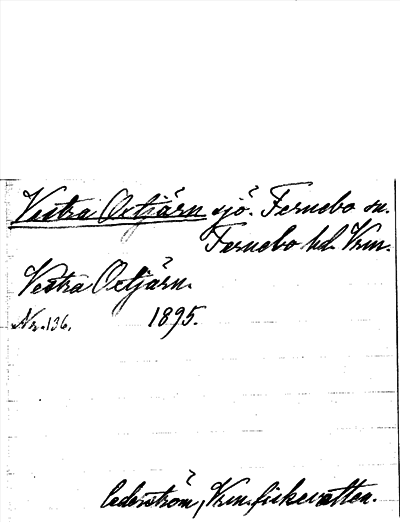 Vestra Oxtjärn sjö. Fernebo sn.
Fernebo hd. Vrm.
Vestra Oxtjärn.
Nr. 136. 1895.
Cederström, Vrm. fiskevatten.